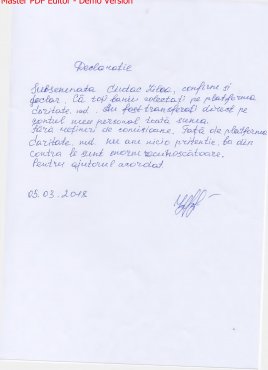 Master PDF Editor - Demo Version
Declarație
Subsemnata Ciutac Liba, confirm și
declar, Că toți banii colectați pe platforma
caritate.md. Au fost transferați direct pe
contul meu personal toată suma.
Fără rețineri de comisioane. Față de platforma
Caritate.md nu am nicio pretenție, ba din
contra le sunt enorm recunoscătoare.
Pentru ajutorul acordat
05.03.2018